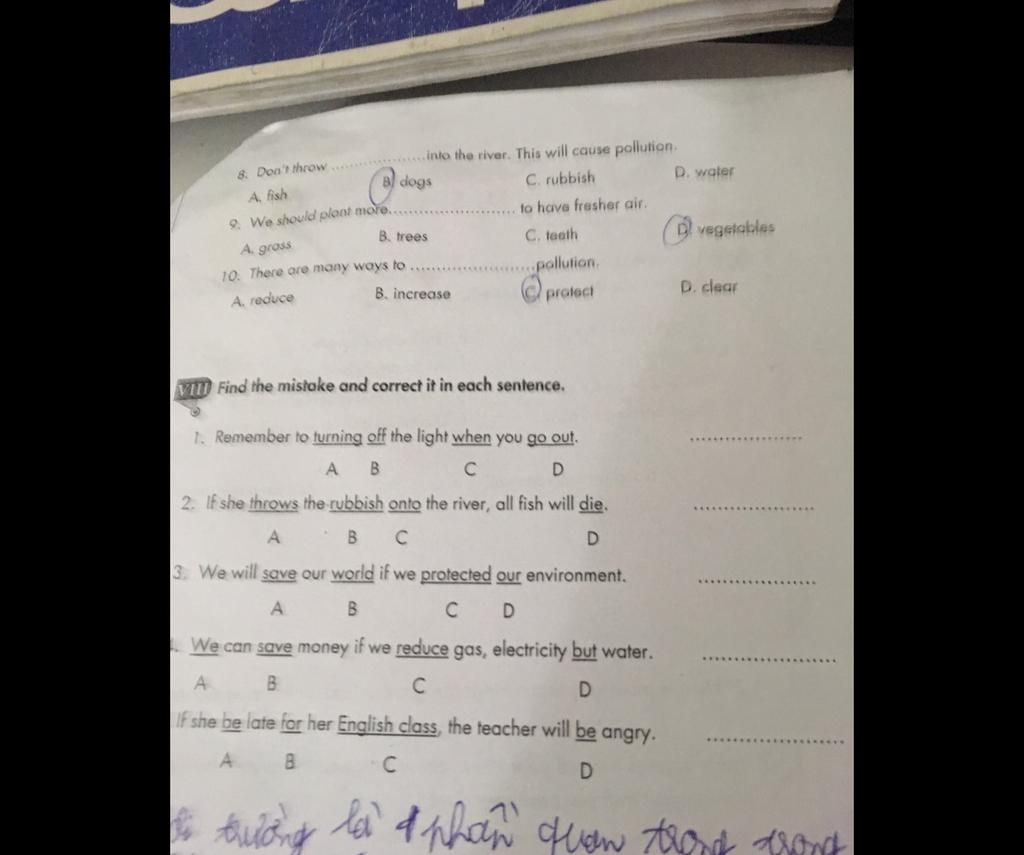 8. Don't throw ..................into the river. This will cause pollution.
A. fish B. dogs C. rubbish D. water
9. We should plant more........................ to have fresher air.
A. grass B. trees C. teeth D. vegetables
10. There are many ways to .......................pollution.
A. reduce B. increase C. protect D. clear
VIII Find the mistake and correct it in each sentence.
1. Remember to turning off the light when you go out. ...................
A B C D
2. If she throws the rubbish onto the river, all fish will die. ....................
A B C D
3. We will save our world if we protected our environment. ...................
A B C D
. We can save money if we reduce gas, electricity but water. .....................
A B C D
If she be late for her English class, the teacher will be angry. ......................
A B C D
trường là 1 phần quan trọng trong